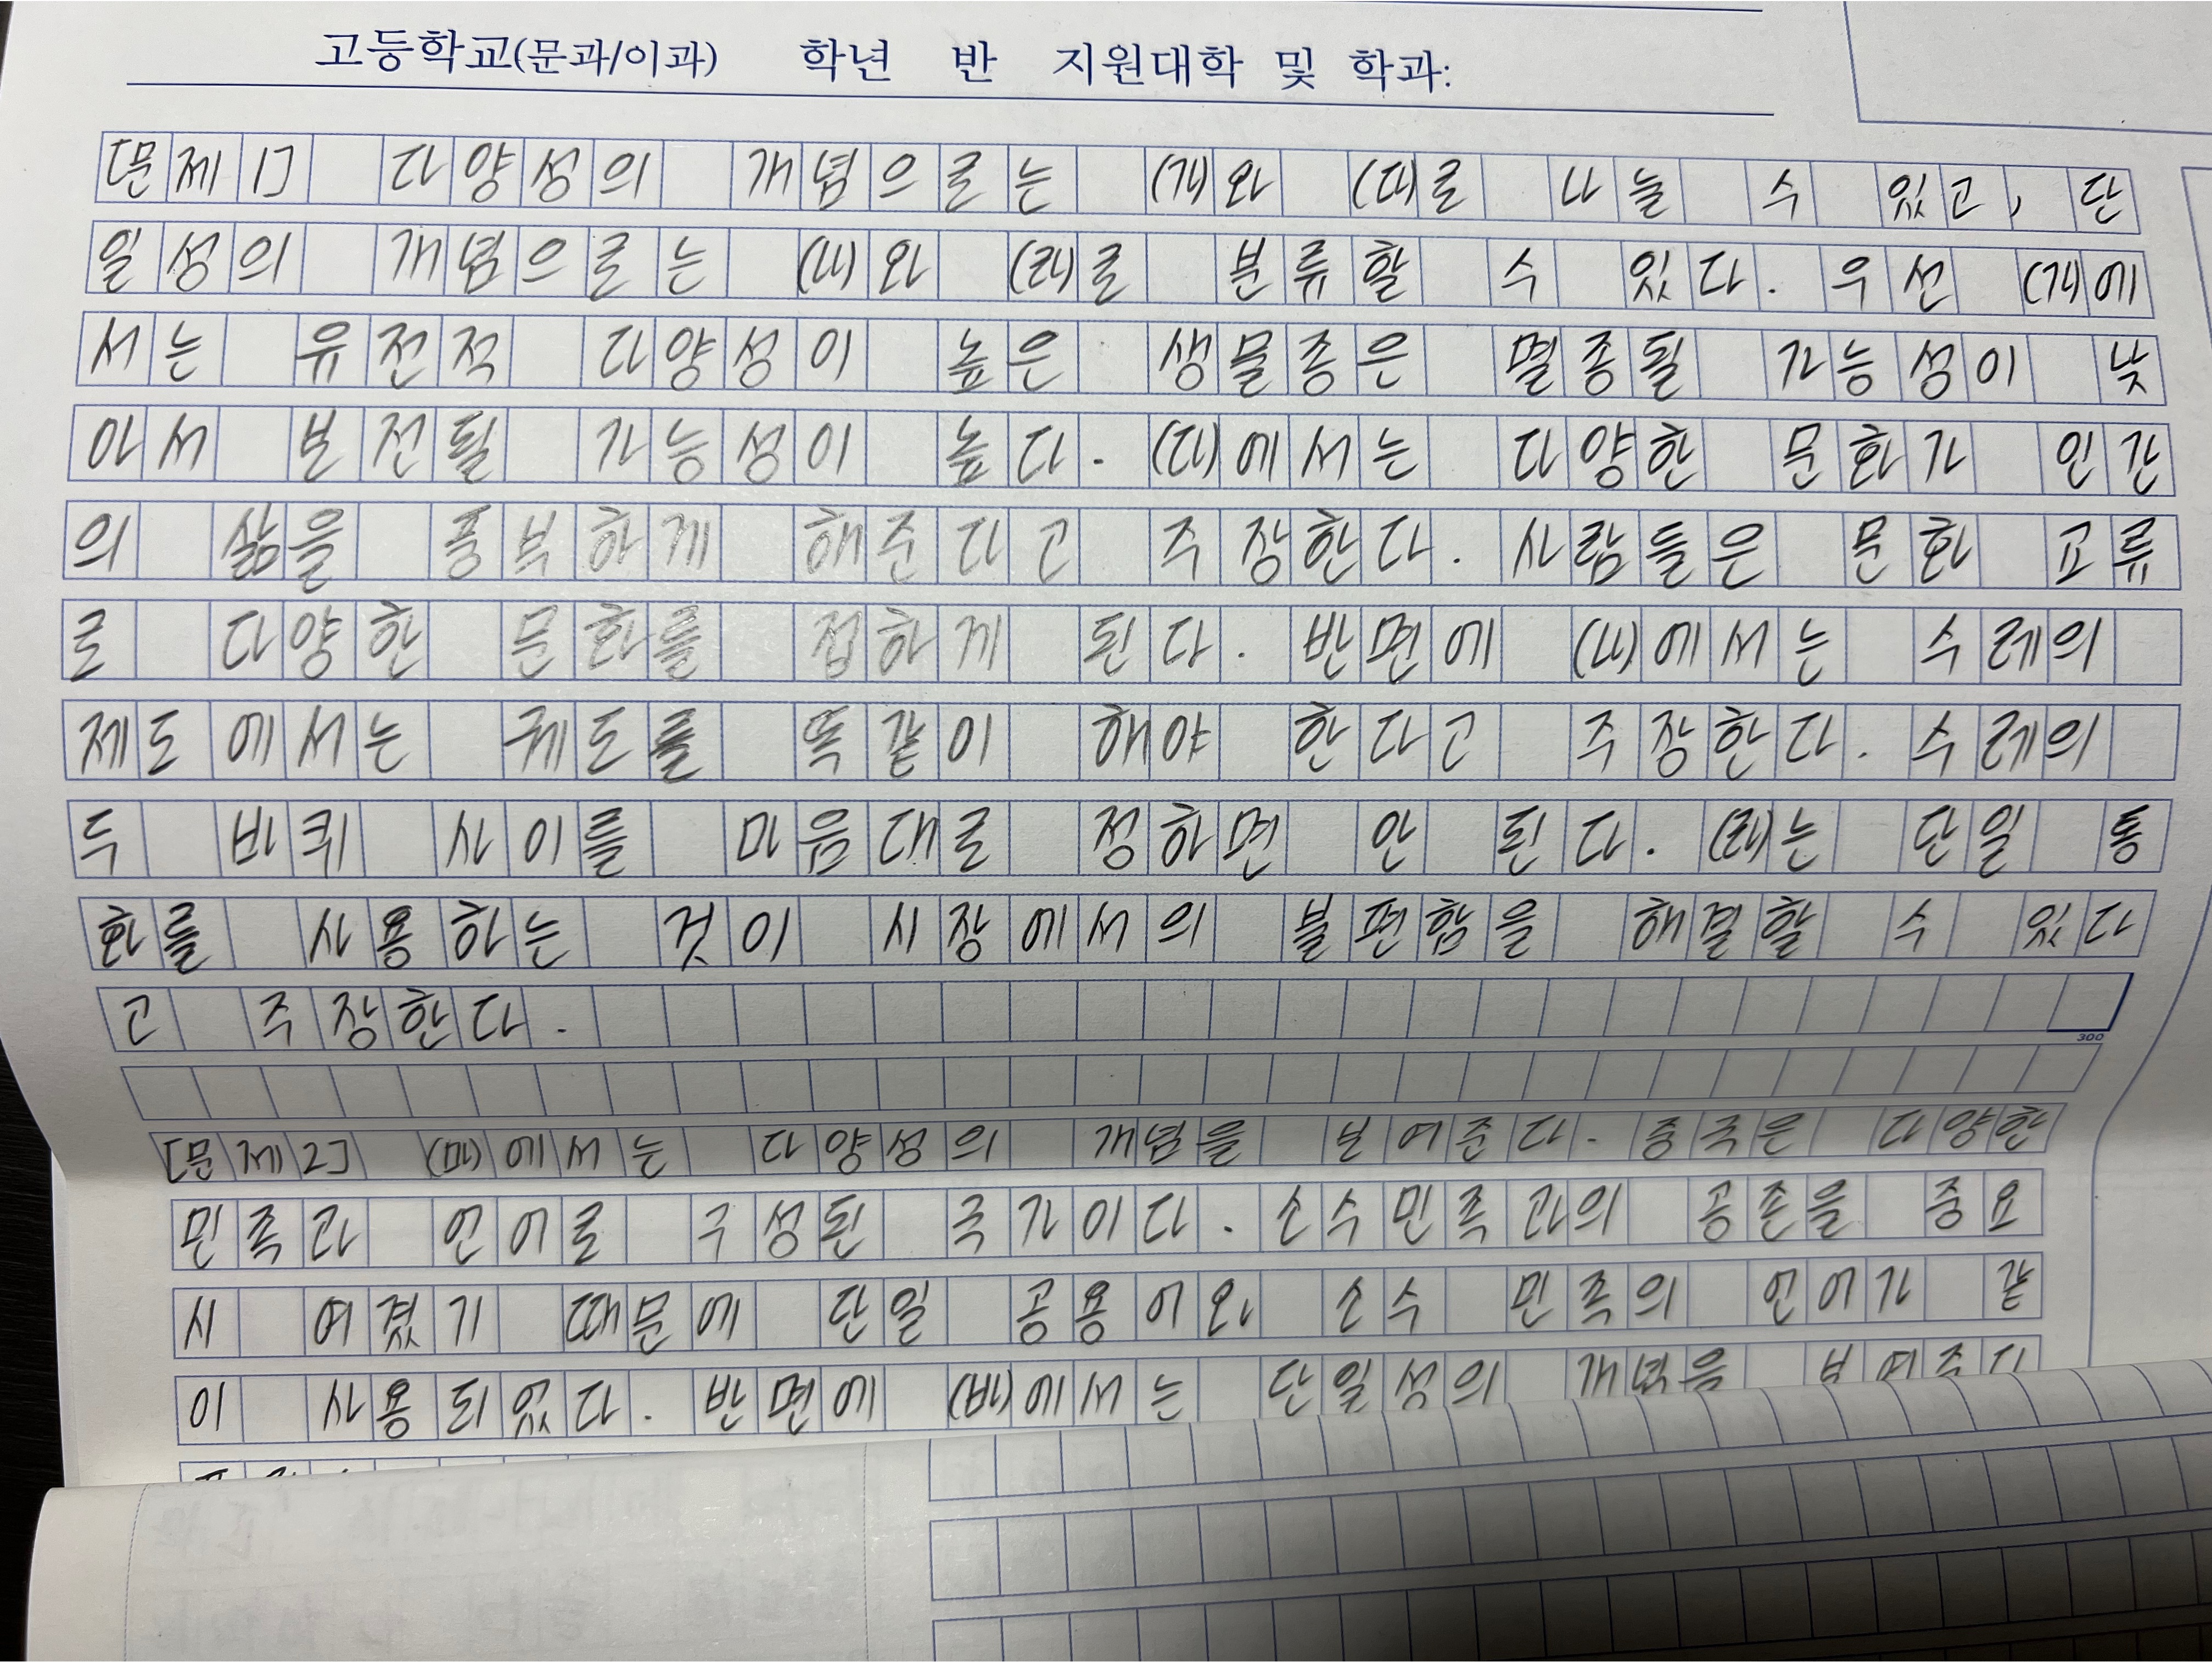 고등학교(문과/이과) 학년 반 지원대학 및 학과:
[문제 1] 다양성의 개념으로는 (가)와 (다)로 나눌 수 있고, 단
일성의 개념으로는 (나)와 (라)로 분류할 수 있다. 우선 (가)에
서는 유전적 다양성이 높은 생물종은 멸종될 가능성이 낮
아서 보전될 가능성이 높다. (다)에서는 다양한 문화가 인간
의 삶을 풍부하게 해준다고 주장한다. 사람들은 문화 교류
로 다양한 문화를 접하게 된다. 반면에 (나)에서는 수레의
제도에서는 궤도를 똑같이 해야 한다고 주장한다. 수레의
두 바퀴 사이를 마음대로 정하면 안 된다. (라)는 단일 통
화를 사용하는 것이 시장에서의 불편함을 해결할 수 있다
고 주장한다.
300
[문제2] (마)에서는 다양성의 개념을 보여준다. 중국은 다양한
민족과 언어로 구성된 국가이다. 소수민족과의 공존을 중요
시 여겼기 때문에 단일 공용어와 소수 민족의 언어가 같
이 사용되었다. 반면에 (바)에서는 단일성의 개념을 보여준다